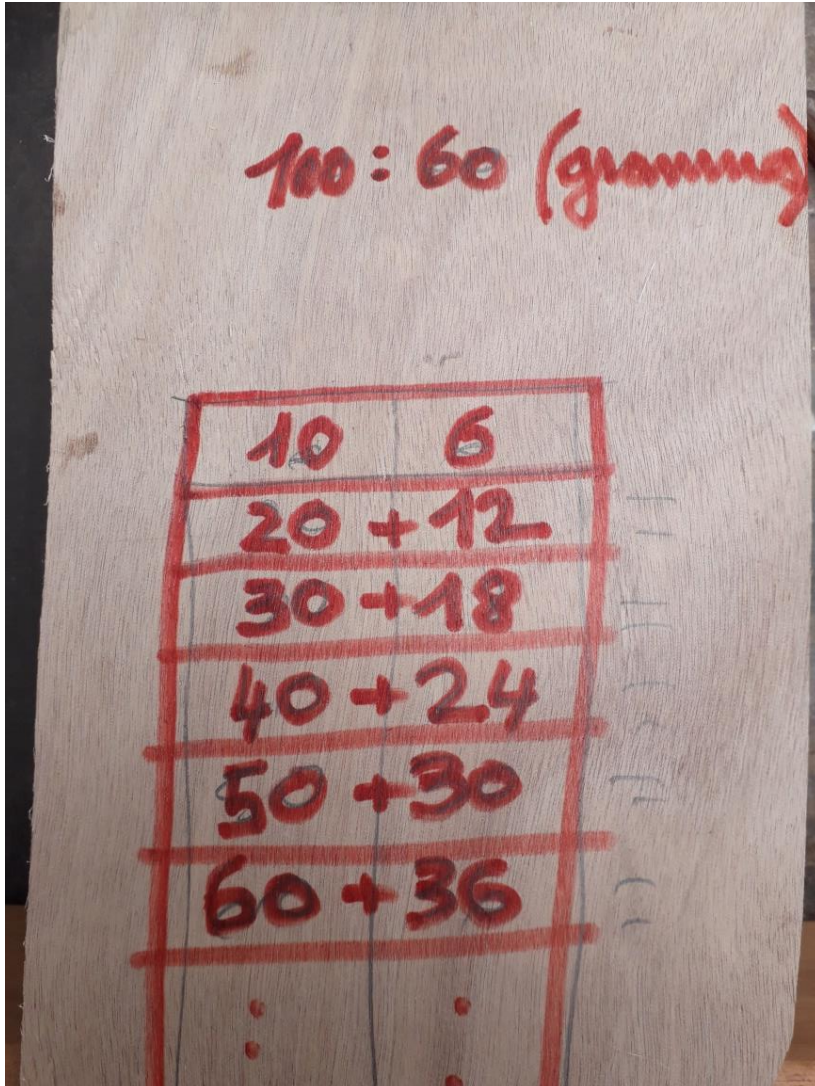 100:60 (gramma)
10 6
20 + 12
30 + 18
40 + 24
50 + 30
60 + 36